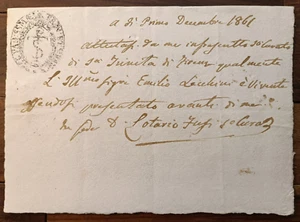 A dì Primo Decembre 1861
Attestasi da me infrascritto Sᵗᵒ Curato
di Sᵃ Trinita di Firenze qualmente
L' Illmo Sigre Emilio Lecchini è Vivente
essendosi presentato avanti di me
In fede D. Lotario Curato